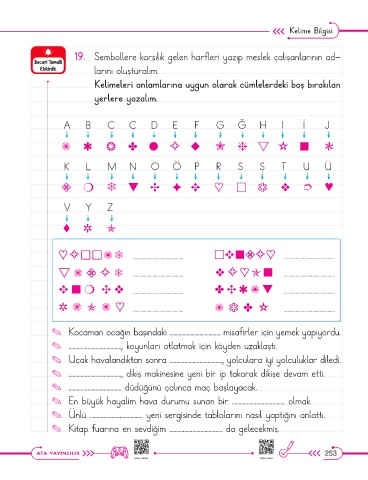 Kelime Bilgisi
Beceri Temelli
Etkinlik
19. Sembollere karşılık gelen harfleri yazıp meslek çalışanlarının ad-
larını oluşturalım.
Kelimeleri anlamlarına uygun olarak cümlelerdeki boş bırakılan
yerlere yazalım.
A B C Ç D E F G Ğ H I İ J
K L M N O Ö P R S Ş T U Ü
V Y Z
Kocaman ocağın başındaki ........................ misafirler için yemek yapıyordu.
........................, koyunları otlatmak için köyden uzaklaştı.
Uçak havalandıktan sonra ........................, yolculara iyi yolculuklar diledi.
........................, dikiş makinesine yeni bir ip takarak dikişe devam etti.
........................ düdüğünü çalınca maç başlayacak.
En büyük hayalim hava durumu sunan bir ........................ olmak.
Ünlü ........................ yeni sergisinde tablolarını nasıl yaptığını anlattı.
Kitap fuarına en sevdiğim ........................ da gelecekmiş.
ATA YAYINCILIK
253